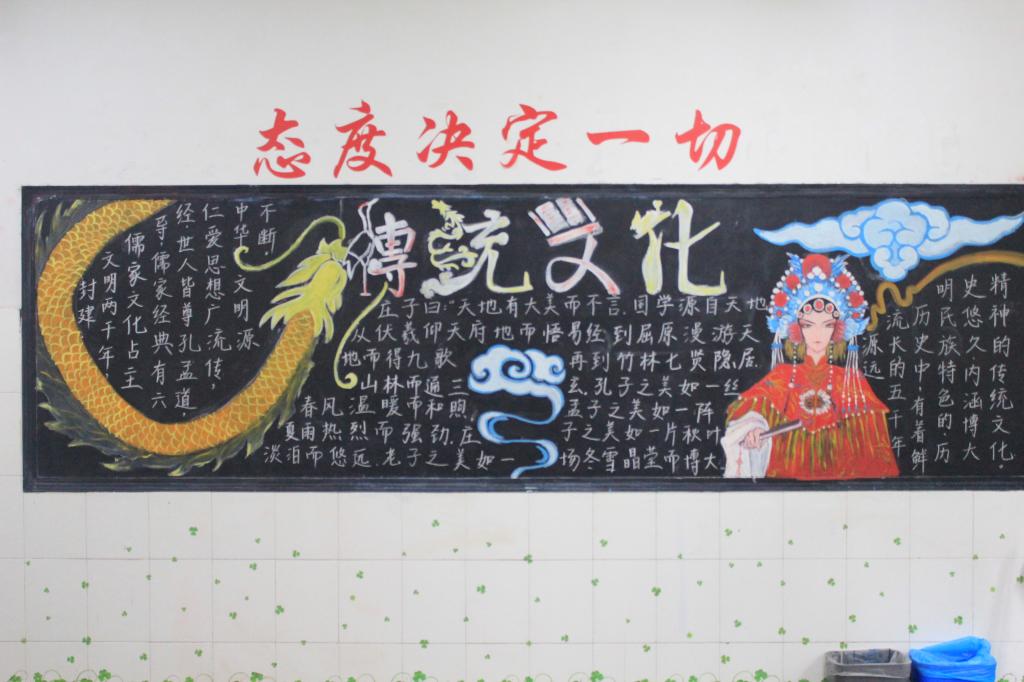 态度决定一切
傳统文化
封建
文明两千年,
儒家文化占主
导,儒家经典有六
经.世人皆尊孔孟道,
仁爱思想广流传,
中华文明源
不断.
庄子曰:"天地有大美而不言.国学源自天地,
从伏羲仰天府地而悟易经,到屈原漫游天
地而得九歌再到竹林七贤隐居
山林而遁三玄.孔子之美如一丝
春风温暖而和煦.孟子之美如一阵
夏雨热烈而强劲.庄子之美如一片秋叶
淡泊而悠远.老子之美如一场冬雪晶莹而博大
源远
流长的五千年
历史中,有着鲜
明民族特色的历
史悠久,内涵博大
精神的传统文化.